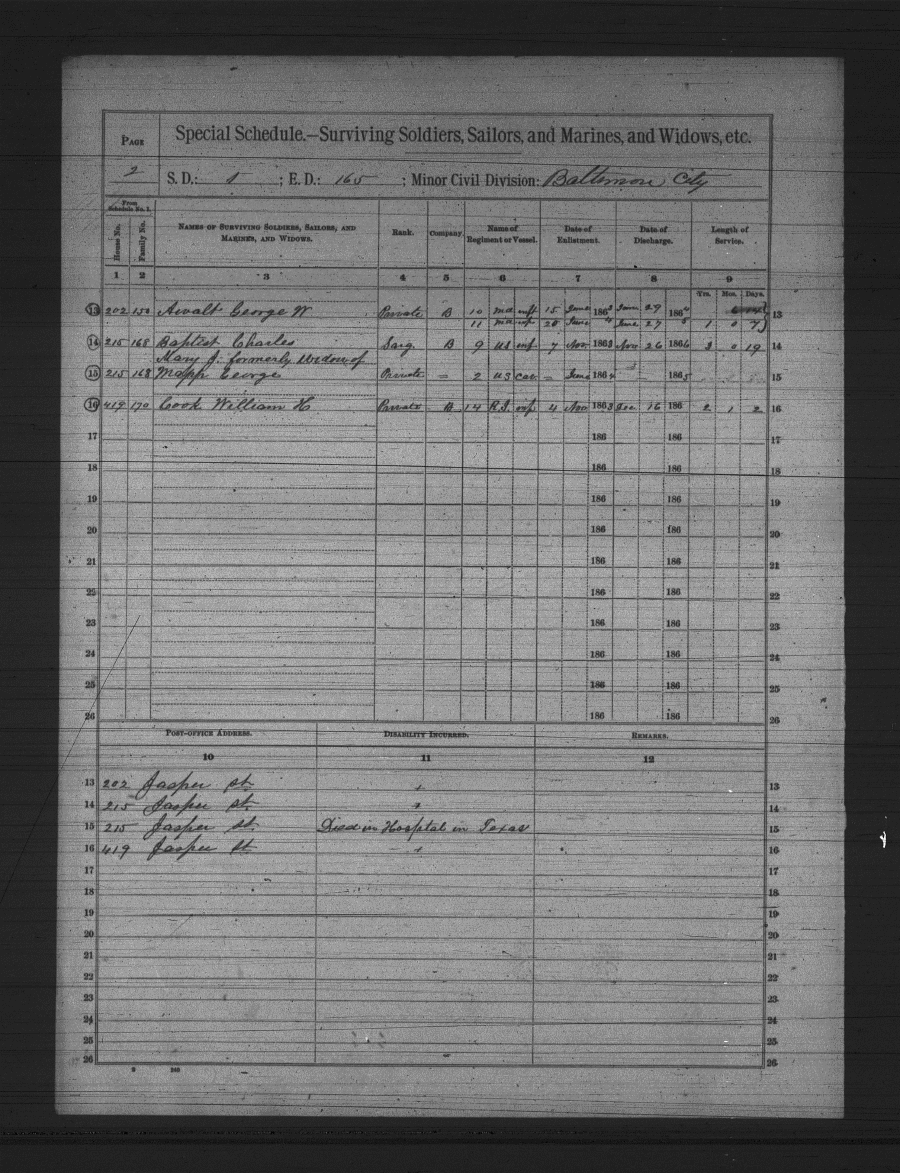 PAGE
2
Special Schedule.—Surviving Soldiers, Sailors, and Marines, and Widows, etc.
S. D.: 1 ; E. D.: 165 ; Minor Civil Division: Baltimore City
From Schedule No. 1.
House No. Family No. NAMES OF SURVIVING SOLDIERS, SAILORS, AND MARINES, AND WIDOWS. Rank. Company. Name of Regiment or Vessel. Date of Enlistment. Date of Discharge. Length of Service.
1 2 3 4 5 6 7 8 9
Yrs. Mos. Days.
13 202 150 Awalt George W Private B 10 md inft 15 June 1863 June 29 1864 13
11 md inf 20 June 4 June 27 5 1 0 7
14 215 168 Baptist Charles Sarg. B 9 US inf 7 Nov. 1863 Nov 26 1866 3 0 19 14
Mary J. formerly Widow of
15 215 168 Mapp George Private = 2 US cav = June 1864 1865 15
16 419 170 Cook William H Private B 14 R.I. inf 4 Nov. 1863 Dec 16 186 2 1 2 16
17 186 186 17
18 186 186 18
19 186 186 19
20 186 186 20
21 186 186 21
22 186 186 22
23 186 186 23
24 186 186 24
25 186 186 25
26 186 186 26
POST-OFFICE ADDRESS. DISABILITY INCURRED. REMARKS.
10 11 12
13 202 Jasper st. 13
14 215 Jasper st. 14
15 215 Jasper st. Died in Hospital in Texas 15
16 419 Jasper St 16
17 17
18 18
19 19
20 20
21 21
22 22
23 23
24 24
25 25
26 26